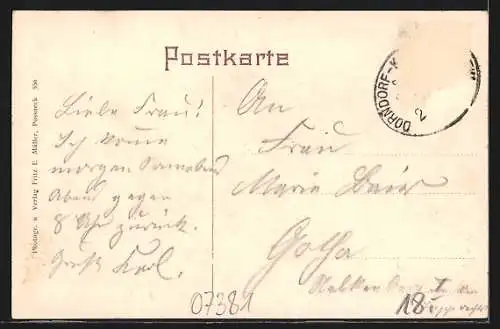 Postkarte
DORNDORF-K
2
Photogr. u Verlag Fritz E. Müller, Pössneck 556
Liebe Frau!
Ich komme
morgen Sonnabend
Abend gegen
8 Uhr zurück.
Gruß Karl.
An
Frau
Marie Baier
Gotha
07381
18
I
rechts